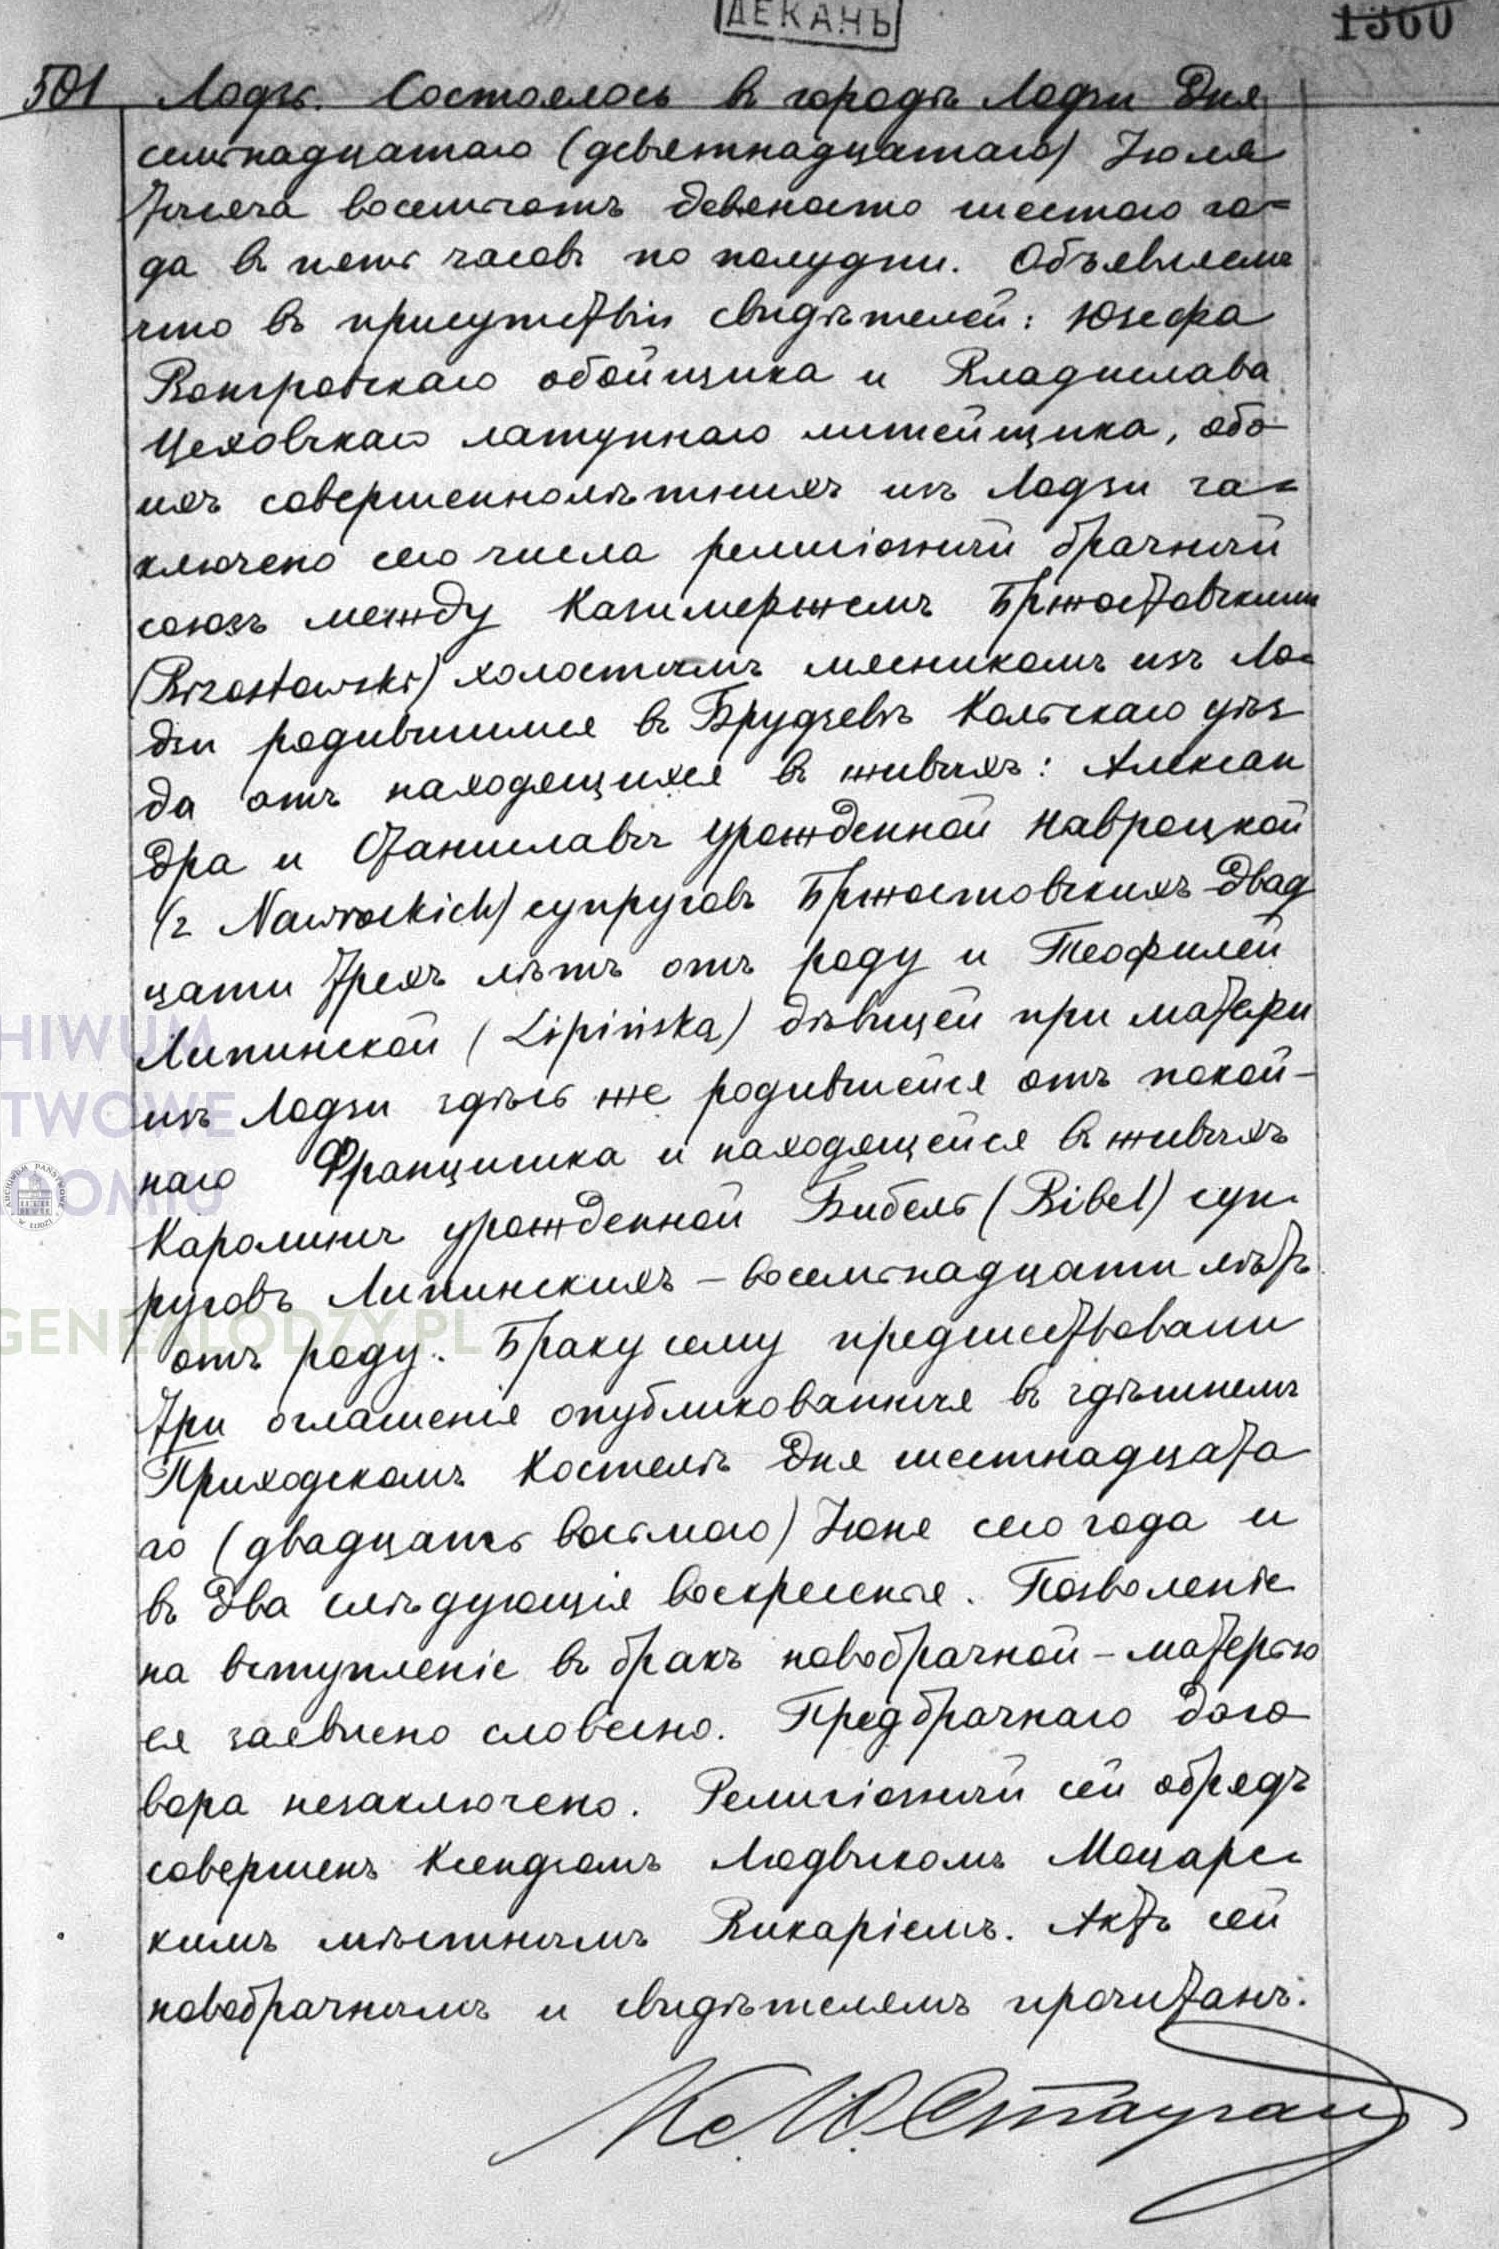 ДЕКАНЪ
1360
501 Лодзь. Состоялось въ городѣ Лодзи Дня
семнадцатаго (девятнадцатаго) Іюля
тысяча восемьсотъ девяносто шестаго го=
да въ пять часовъ по полудни. Объявляемъ
что въ присутствіи свидѣтелей: Юзефа
Вонгровскаго обойщика и Владислава
Цеховскаго латуннаго литейщика, обо
ихъ совершеннолѣтнихъ изъ Лодзи за=
ключено сего числа религіозный брачный
союзъ между Казимержемъ Бржостовскимъ
(Brzostowski) холостымъ мясникомъ изъ Ло=
дзи родившимся въ Брудзевѣ Кольскаго уѣз
да отъ находящихся въ живыхъ: Алексан
дра и Станиславы урожденной Навроцкой
(z Nawrockich) супруговъ Бржостовскихъ двад
цати трехъ лѣтъ отъ роду и Теофилей
Липинской (Lipińska) дѣвицей при матери
изъ Лодзи здѣсь же родившейся отъ покой-
наго Францишка и находящейся въ живыхъ
Каролины урожденной Бибель (Bibel) суп=
руговъ Липинскихъ – восемнадцати лѣтъ
отъ роду. Браку сему предшествовали
три оглашенія опубликованныя въ здѣшнемъ
Приходскомъ Костелѣ дня шестнадцата
го (двадцать восьмого) Іюня сего года и
въ два слѣдующія воскресенья. Позволеніе
на вступленіе въ бракъ новобрачной – матерью
ея заявлено словесно. Предбрачнаго дого
вора незаключено. Религіозный сей обрядъ
совершенъ Ксендзомъ Людвикомъ Моцарс=
кимъ мѣстнымъ Викаріемъ. Актъ сей
новобрачнымъ и свидѣтелямъ прочитанъ.
HIWUM
TWOWE
DOMIU
ARCHIWUM PAŃSTWOWE W ŁODZI
GENEALODZY.PL